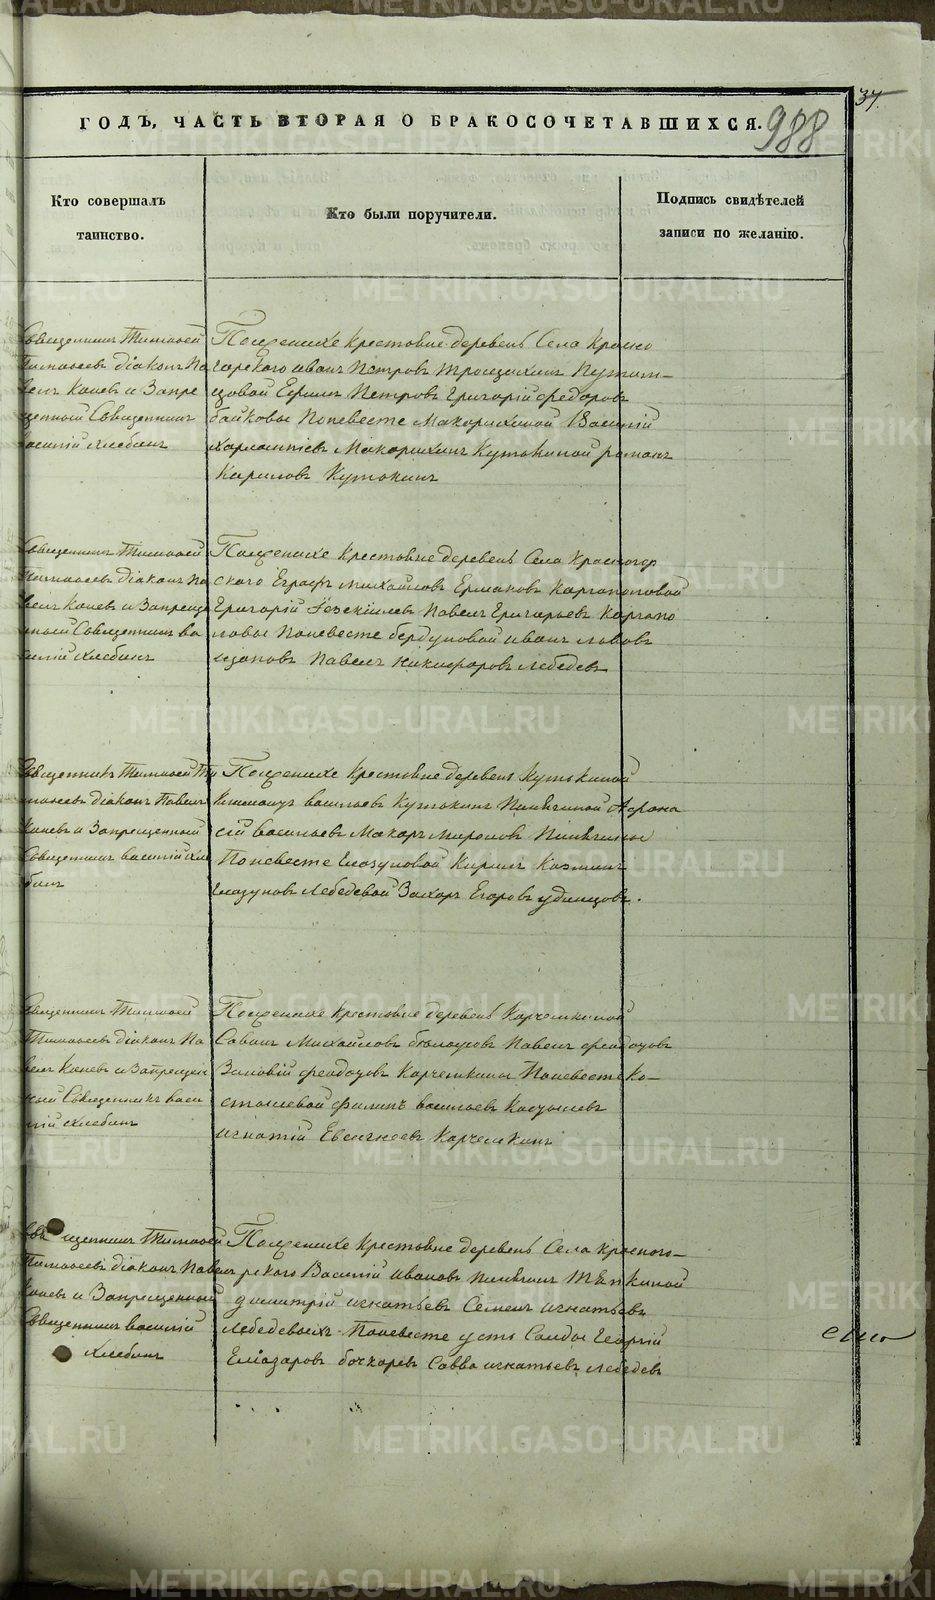 37
ГОДЪ, ЧАСТЬ ВТОРАЯ О БРАКОСОЧЕТАВШИХСЯ.
988
Кто совершалъ
таинство.
Кто были поручители.
Подпись свидѣтелей
записи по желанію.
Священникъ Тимоѳей
Тимоѳеевъ діаконъ Па
велъ Каневъ и Запре
щенный Священникъ
василій Хлебинъ
Поженихе Крестьяне деревень Села Красно
горского иванъ Петровъ
Ефимъ Петровъ Григорій федоровъ
байковы Поневесте Макарихиной Василій
харлампіевъ Макарихинъ Кутькиной романъ
Кириловъ Кутькинъ
Священникъ Тимоѳей
Тимоѳеевъ діаконъ Па
велъ Каневъ и Запреще
нный Священникъ ва
силій Хлебинъ
Поженихе Крестьяне деревень Села Красногор
ского Еграфъ михайловъ Ермаковъ Каргаполовой
Григорій Іезекіилевъ Павелъ Григорьевъ Каргапо
ловы Поневесте бердуновой иванъ львовъ
Павелъ никифоровъ лебедевъ
Священникъ Тимоѳей Ти
моѳеевъ діаконъ Павелъ
Каневъ и Запрещенный
Священникъ василій Хле
бинъ
Поженихе Крестьяне деревень Кутькиной
васильевъ Кутькинъ Пинягиной Афана
сій васильевъ Макаръ мироновъ Пинягины
Поневесте Глазуновой Кирилъ Козминъ
Глазуновъ Лебедевой Захаръ Егоровъ удинцовъ.
Священникъ Тимоѳей
Тимоѳеевъ діаконъ Па
велъ Каневъ и Запрещен
ный Священникъ васи
лій Хлебинъ
Поженихе Крестьяне деревень Карчемкиной
Савинъ Михайловъ белоусовъ Павелъ феодоровъ
Зиновій феодоровъ Карчемкины Поневесте Ко-
стылевой филипъ васильевъ Костылевъ
игнатій Евсигнеевъ Карчемкинъ
Священникъ Тимоѳей
Тимоѳеевъ діаконъ Павелъ
Каневъ и Запрещенный
Священникъ василій
Хлебинъ
Поженихе Крестьяне деревень Села Красного-
рского Василій ивановъ Пинягинъ Тёпкиной
димитрій игнатьевъ Семенъ игнатьевъ
лебедевыхъ Поневесте усть Салды Георгій
Елиазаровъ бочкаревъ Савва игнатьевъ лебедевъ
METRIKI.GASO-URAL.RU